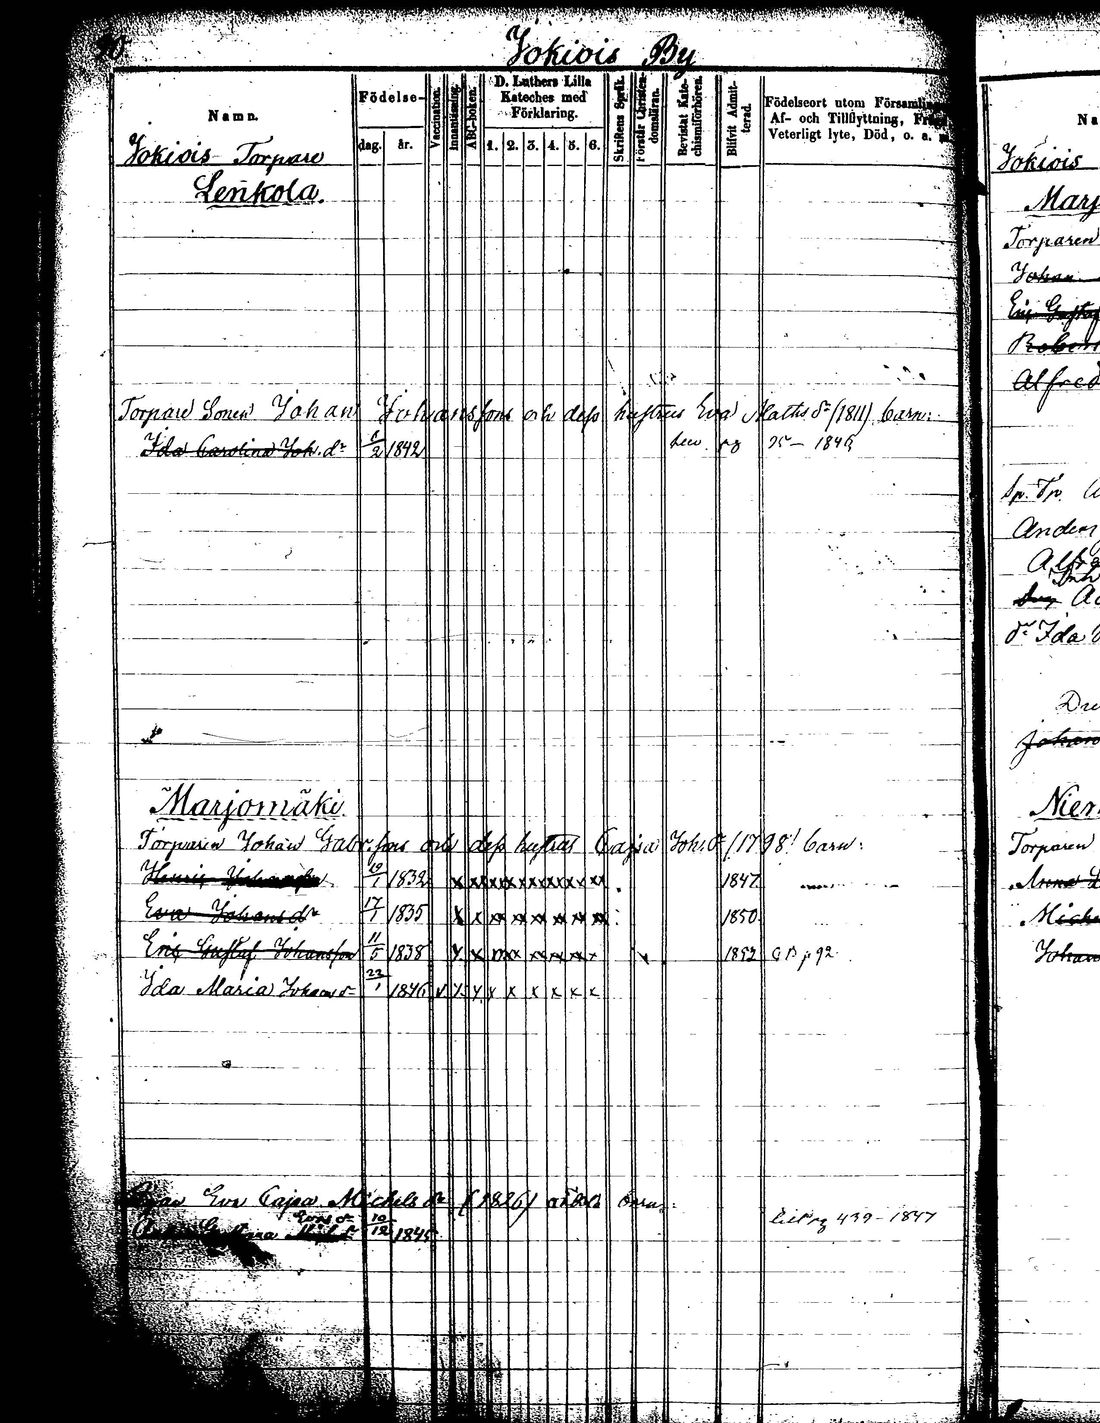 Jokiois By
Namn.
Födelse-
dag.
år.
Vaccination.
Innanläsning.
ABC-boken.
D. Luthers Lilla
Kateches med
Förklaring.
1. 2. 3. 4. 5. 6.
Skriftens Språk.
Förstår Christendomsläran.
Bevistat Kate-
chismiförhören.
Blifvit Admit-
terad.
Födelseort utom Församling
Af- och Tillflyttning,
Veterligt lyte, Död, o. a.
Jokiois Torpare
Lenkola.
Torpare Sonen Johan Johansfons och defs huftrus Eva Maths dr (1811) barn:
Ida Carolina Joh. dr 6/2 1842 pg 95 – 1846
Marjomäki.
Torparen Johan Gabr.fons och defs huftrus Cajsa Joh. dr (1798) barn:
Henric 19/1 1832 x x x x x x x x 1847
Eva Johans dr 17/1 1835 x x x x x x x x 1850.
Eric Gustaf Johansfon 11/5 1838 x x x x x x x x 1852 p 92
Ida Maria Johans dr 22/1 1846 v x x x x x x x x
Eva Cajsa Michels dr (1826) barn:
Eves dr 10/12 1845 pg 439 – 1847
Na
Jokiois
Marj
Torparen
Johan
Eric Gustaf
Alfred
Anders
dr Ida
Johan
Niem
Torparen
Anna
Miche
Johan